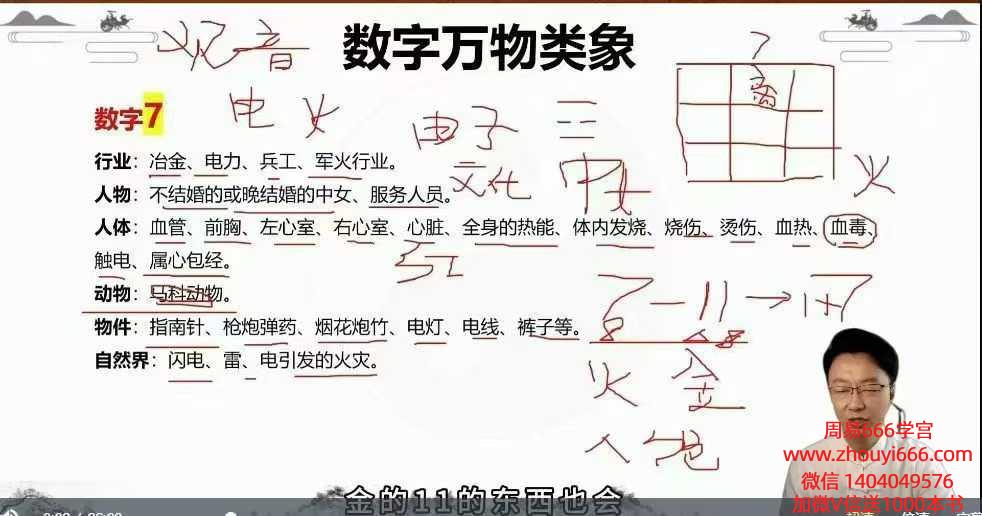 观音
数字万物类象
7
离
数字7
电 火
电子 三
火
行业：冶金、电力、兵工、军火行业。
文化 中女
人物：不结婚的或晚结婚的中女、服务人员。
人体：血管、前胸、左心室、右心室、心脏、全身的热能、体内发烧、烧伤、烫伤、血热、血毒、
触电、属心包经。
动物：马科动物。
7—11→1+7
物件：指南针、枪炮弹药、烟花炮竹、电灯、电线、裤子等。
自然界：闪电、雷、电引发的火灾。
火 金
周易666学宫
www.zhouyi666.com
微信 1404049576
加微V信送1000本书
金的11的东西也会